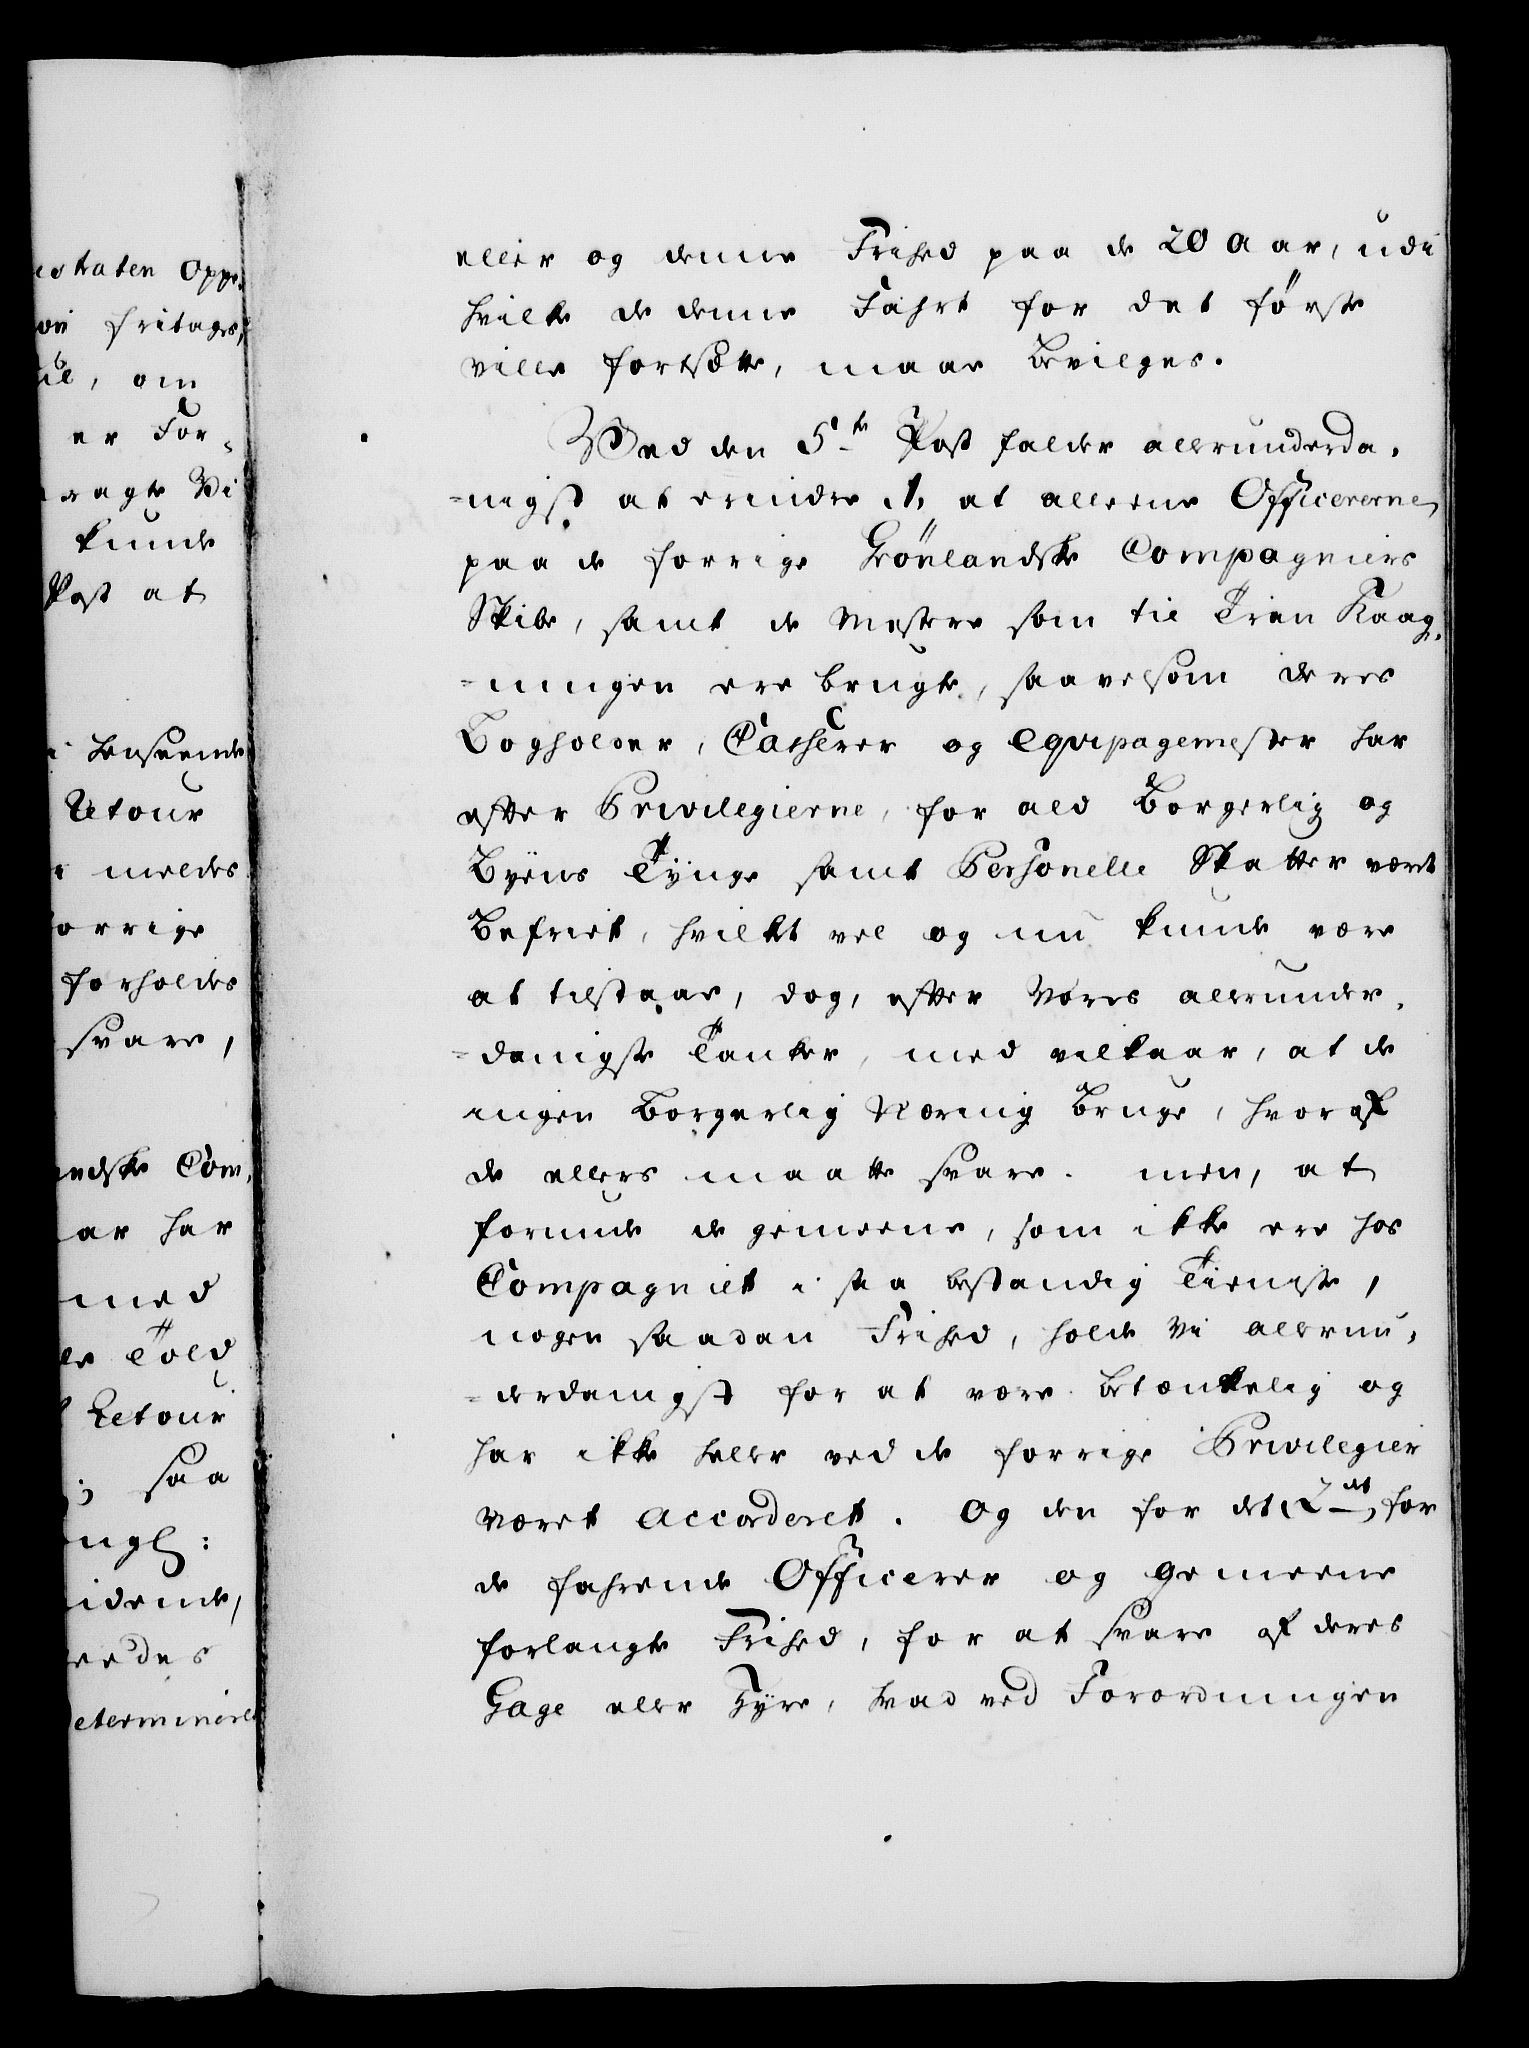 istraten Oppe-
fritages,
, om
er For-
ragte Vi
kunde
Post at
henseende
Retour
meldes
forrige
forholdes
svare,
andske Com-
ar har
med
le Told
Retour
saa
eedes
eterminéret
eller og denne Frihed paa de 20 Aar, udi
hvilke de denne Fahrt for det første
ville fortsætte, maae bevilges.
Ved den 5te Post falder allerunderda-
-nigst at erindre 1, at alleene Officererne
paa de forrige Grönlandske Compagniers
Skibe, samt de Mestere som til Tran Kaag-
-ningen ere brugte, saavelsom deres
Bogholder, Casserer og Equipagemester har
efter Privilegierne, for ald Borgerlig og
Byens Tynge samt Personelle Skatter vært
befriet, hvilket vel og nu kunde være
at tilstaae, dog, efter Vores allerunder-
-danigste Tanker, med vilkaar, at de
ingen Borgerlig Næring bruge, hvoraf
de ellers maatte svare. men, at
formde de gemeene, som ikke ere hos
Compagniet i saa bestandig Tieniste,
nogen saadan Frihed, holde Vi allerun-
-derdanigst for at være betænkelig og
har ikke heller ved de forrige Privilegier
været accorderet. Og den for det 2det, for
de fahrende Officerer og Gemeene
forlangte Frihed, for at svare af deres
Gage eller Hyre, hvad ved Forordningen